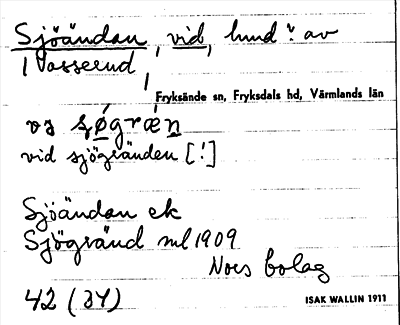 Sjöändan, vid, hmd v. av
Vasserud,
Fryksände sn, Fryksdals hd, Värmlands län
sjögränden
vid sjögränden [!]
Sjöändan ek
Sjögränd ml 1909
Nors bolag
42 (34)
ISAK WALLIN 1911